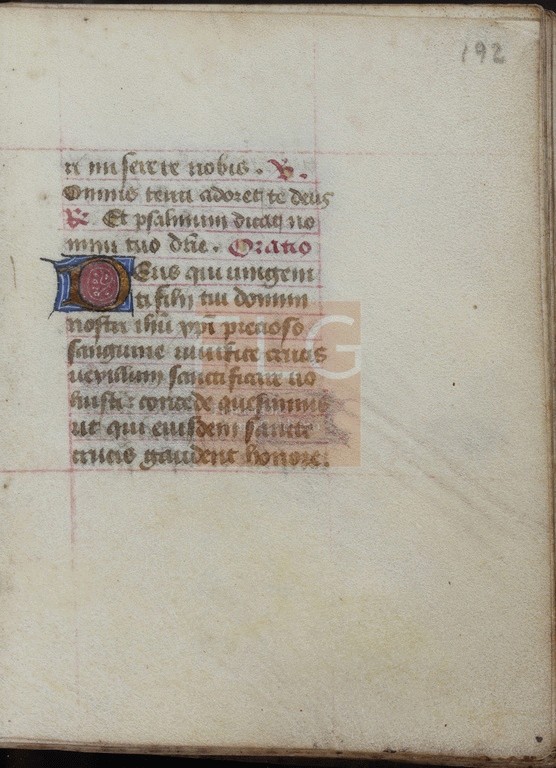 192
ri miserere nobis. V.
Omnis terra adoret te deus
R Et psalmum dicat no
mini tuo dñe. Oratio
Deus qui unigeni
ti filij tui domini
nostri ihũ xpĩ precioso
sanguine vivifice crucis
vexillum sanctificare vo
luisti concede quesumus
ut qui eiusdem sancte
crucis gaudent honore.
TLG